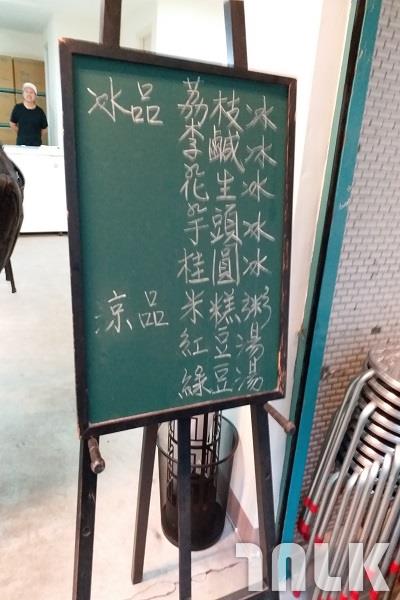 冰品 荔枝冰
李鹹冰
花生冰
芋頭冰
桂圓冰
涼品 米糕粥
紅豆湯
綠豆湯
TALK